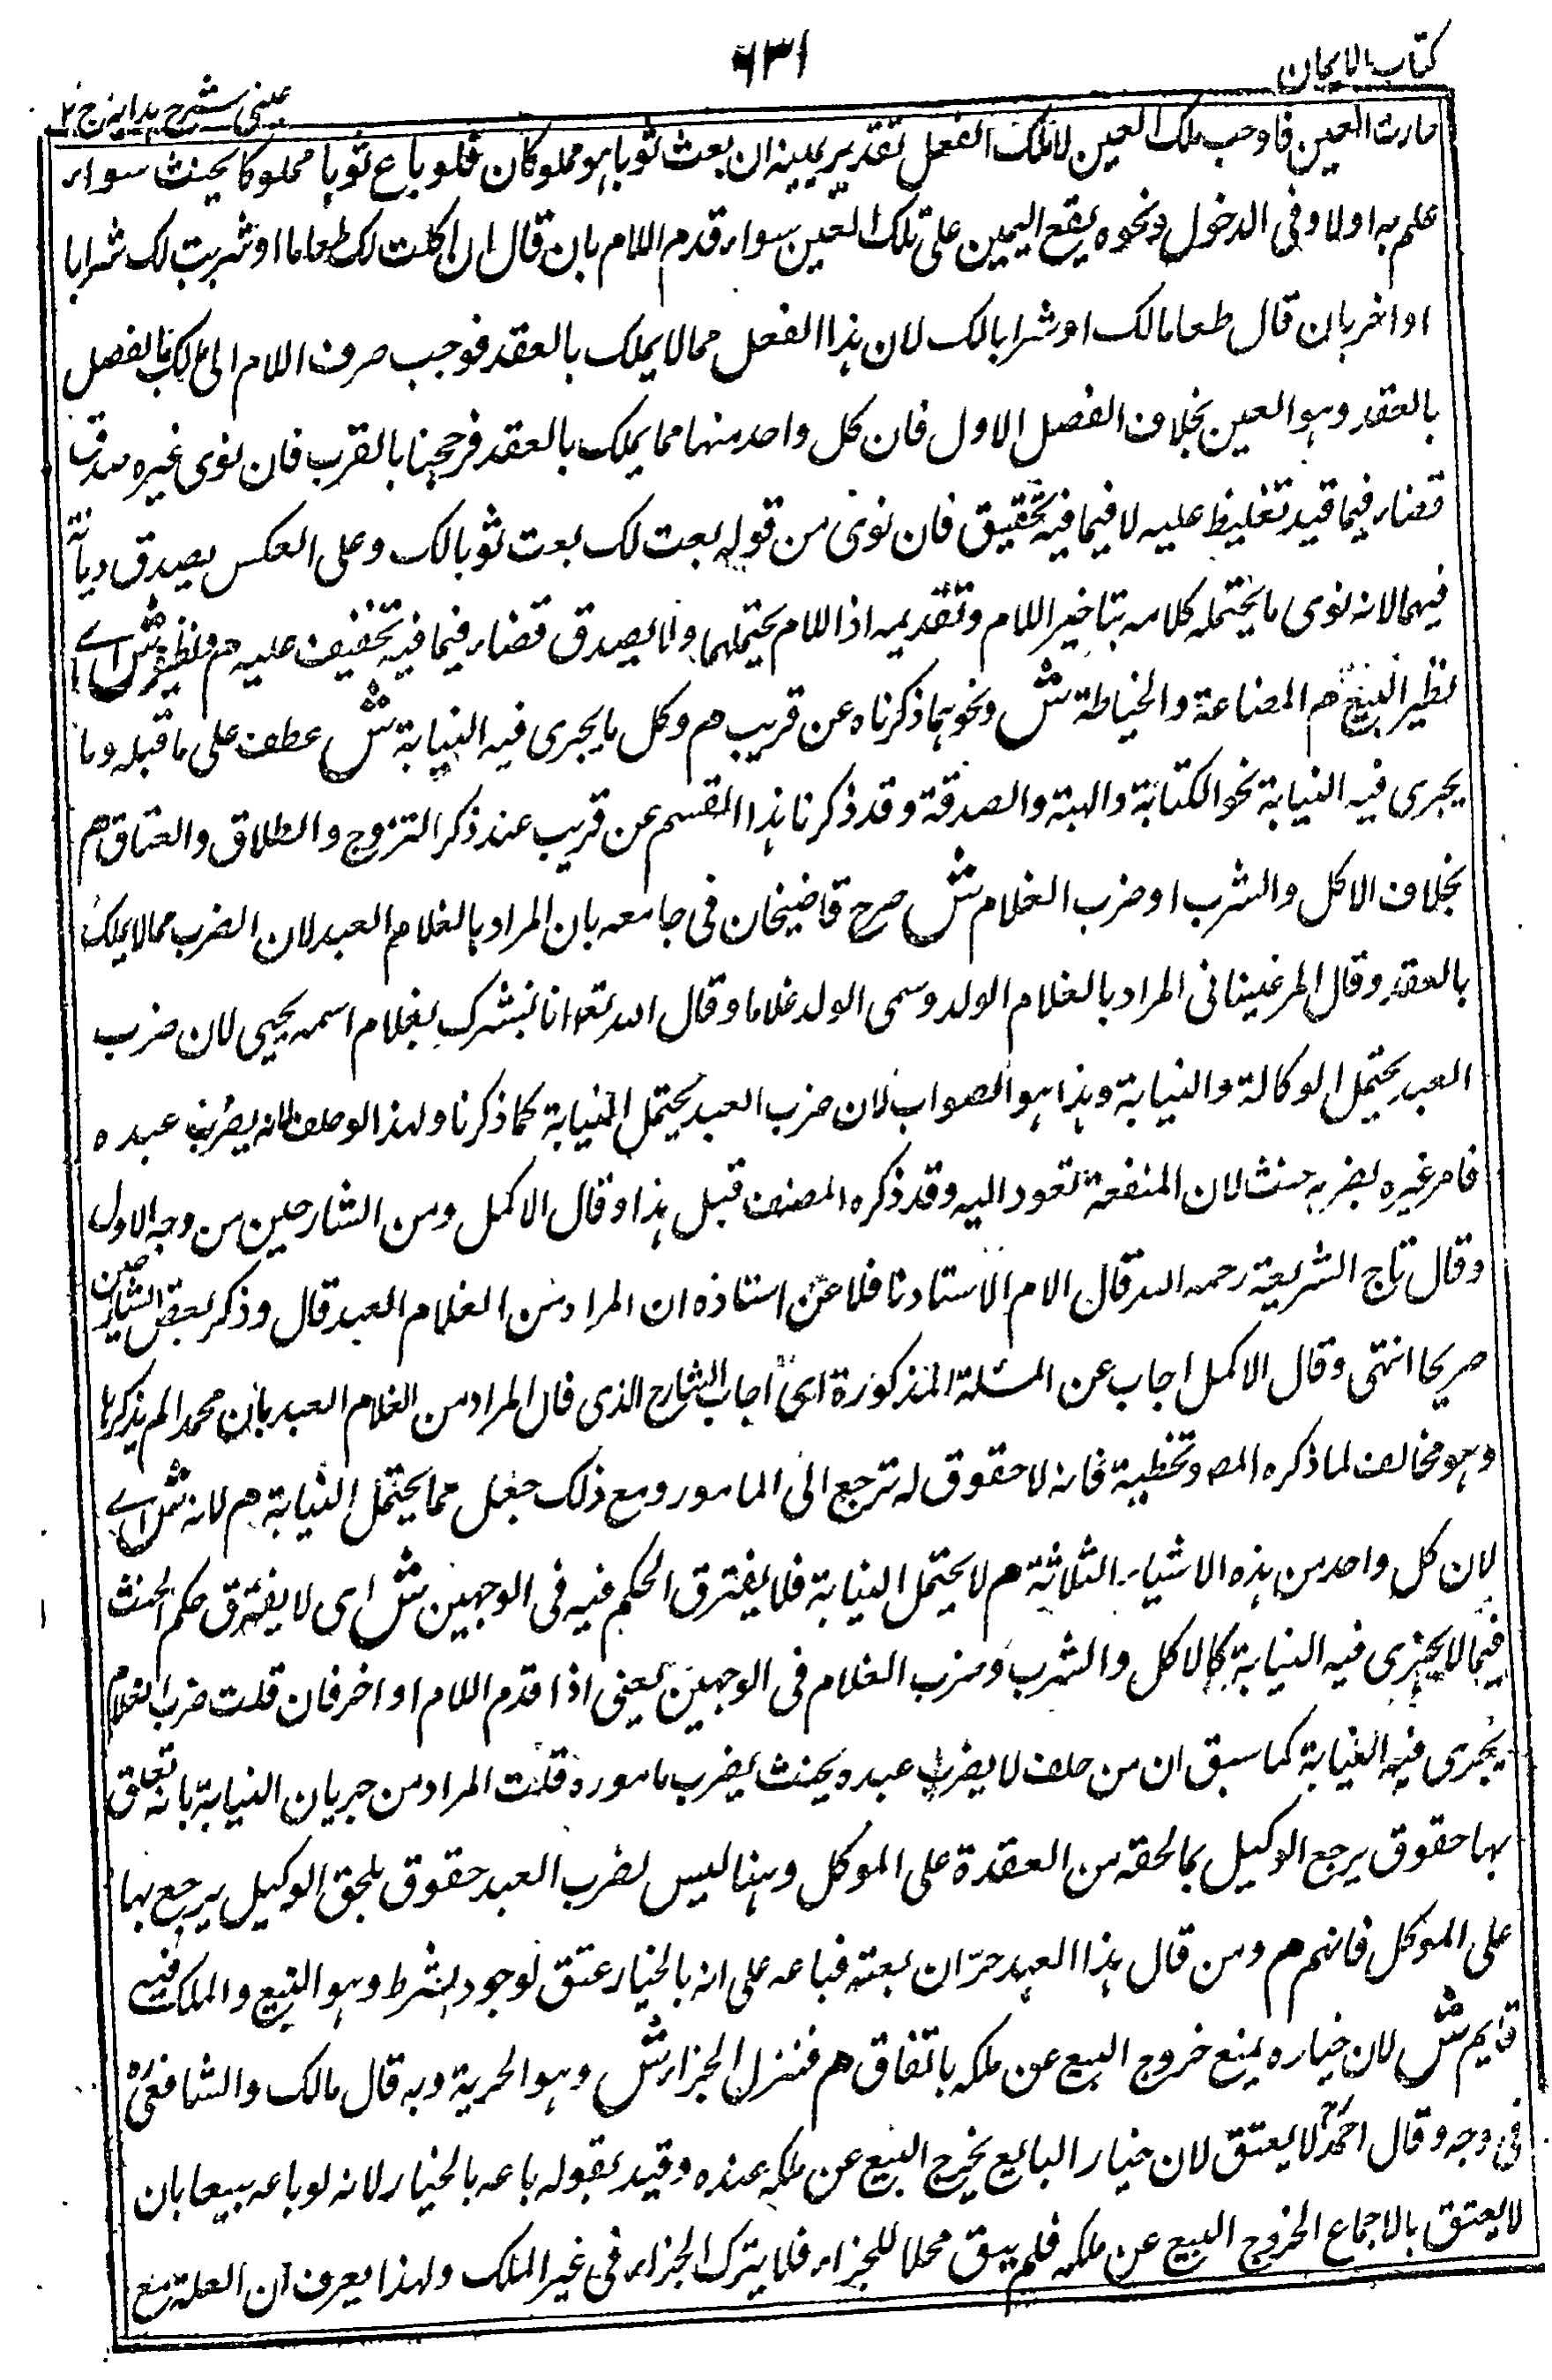 كتاب الايمان
٦٣١
عينى شرح هدايه ج ٢
جارت العين فاوجب ملك العين لا ملك الفعل تقدير يمينه ان بعت ثوبا هو مملوكان فلو باع ثوبا مملوكا يحنث سواء
علم به اولا وفى الدخول ونحوه يقع اليمين على تلك العين سواء قدم اللام بان قال ان اكلت لك طعاما او شربت لك شرابا
او اخر بان قال طعاما لك او شرابا لك لان هذا الفعل مما لا يملك بالعقد فوجب صرف اللام الى ما يملك بالفصل
بالعقد وهو العين بخلاف الفصل الاول فان كل واحد منهما مما يملك بالعقد فرجحنا بالقرب فان نوى غيره صدق
قضاء فيما فيه تغليظ عليه لا فيما فيه تحقيق فان نوى من قوله بعت لك بعت ثوبا لك وعلى العكس يصدق ديانة
فيهما لانه نوى ما يحتمله كلامه بتاخير اللام وتقديمه اذ اللام يحتملهما ولا يصدق قضاء فيما فيه تخفيف عليه م ونظيره ش اے
نظير البيع م الصناعة والخياطة ش ونحوهما ذكرناه عن قريب م وكل ما يجرى فيه النيابة ش عطف على ما قبله وما
يجرى فيه النيابة نحو الكتابة والهبة والصدقة وقد ذكرنا هذا القسم عن قريب عند ذكر التزوج والطلاق والعتاق م
بخلاف الاكل والشرب او ضرب الغلام ش صرح قاضيخان فى جامعه بان المراد بالغلام العبد لان الضرب مما لا يملك
بالعقد وقال المرغينانى المراد بالغلام الولد وسمى الولد غلاما وقال الله تعا انا نبشرك بغلام اسمه يحيى لان ضرب
العبد يحتمل الوكالة والنيابة وهذا هو الصواب لان ضرب العبد يحتمل النيابة كما ذكرنا ولهذا لو حلف لانه يضرب عبده
فامر غيره بضربه حنث لان المنفعة تعود اليه وقد ذكره المصنف قبل هذا وقال الاكمل ومن الشارحين من وجه الاول
وقال تاج الشريعة رحمه الله قال الامام الاستاد نا قلا عن استاذه ان المراد من الغلام العبد قال وذكر بعض الشارحين
صريحا انتهى وقال الاكمل اجاب عن المسئلة المذكورة اى اجاب الشارح الذى قال المراد من الغلام العبد بان محمدا لم يذكرها
وهو مخالف لما ذكره المص وتخطية فانه لا حقوق له ترجع الى المامور ومع ذلك جعل مما يحتمل النيابة م لانه ش اے
لان كل واحد من هذه الاشياء الثلاثة م لا يحتمل النيابة فلا يفترق الحكم فيه فى الوجهين ش اى لا يفترق حكم الحنث
فيما لا يجرى فيه النيابة كالاكل والشرب وضرب الغلام فى الوجهين يعنى اذا قدم اللام او اخر فان قلت ضرب الغلام
يجرى فيه النيابة كما سبق ان من حلف لا يضرب عبده يحنث بضرب ماموره قلت المراد من جريان النيابة بانه تعلق
بها حقوق يرجع الوكيل بما لحقه من العقدة على الموكل وههنا ليس لضرب العبد حقوق يلحق الوكيل يرجع بها
على الموكل فافهم م ومن قال هذا العبد حر ان بعته فباعه على انه بالخيار عتق لوجود الشرط وهو البيع والملك فيه
قايم ش لان خياره يمنع خروج البيع عن ملكه باتفاق م فنزل الجزاء ش وهو الحرية وبه قال مالك والشافعى رح
فى وجه وقال احمد رح لا يعتق لان خيار البايع يخرج البيع عن ملكه عنده وقيد بقوله باعه بالخيار لانه لو باعه بيعا بان
لا يعتق بالاجماع الخروج البيع عن ملكه فلم يبق محلا للجزاء فلا يترك الجزاء فى غير الملك ولهذا يعرف ان العلة مع